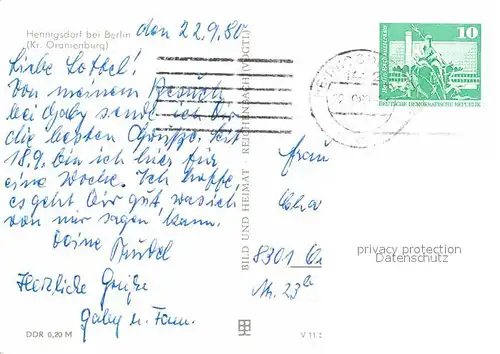 Hennigsdorf bei Berlin
(Kr. Oranienburg)
den 22.9.80
Liebe Lottel!
Von meinem Besuch
bei Gaby sende ich Dir
die besten Grüße. Seit
18.9. bin ich hier für
eine Woche. Ich hoffe,
es geht Dir gut, was ich
von mir sagen kann.
Deine
Herzliche Grüße
Gaby u. Fam.
DDR 0,20 M
BILD UND HEIMAT REICHENBACH (VOGTL)
V 11
10
DEUTSCHE DEMOKRATISCHE REPUBLIK
Frau
Cha
8301
Nr. 23b
privacy protection
Datenschutz